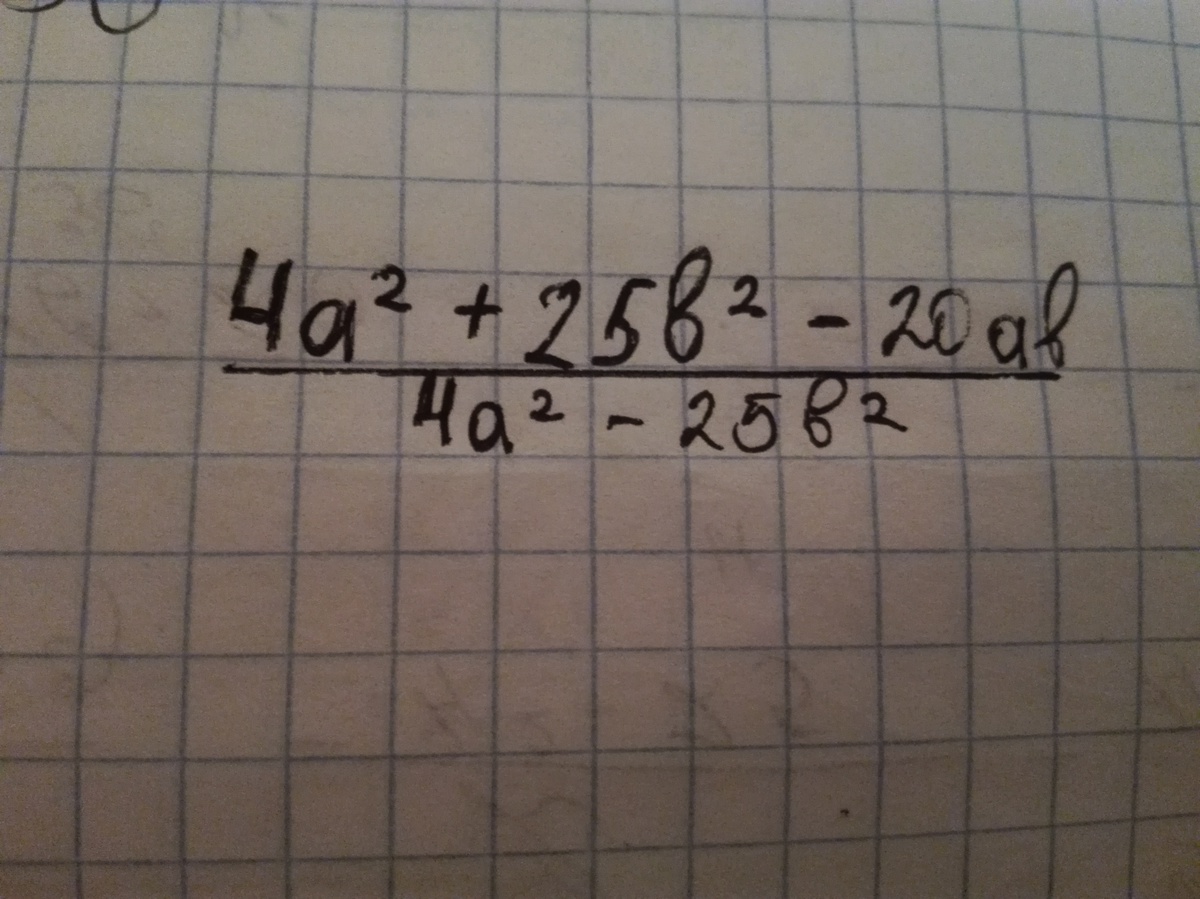 4a² + 25b² - 20ab
4a² - 25b²